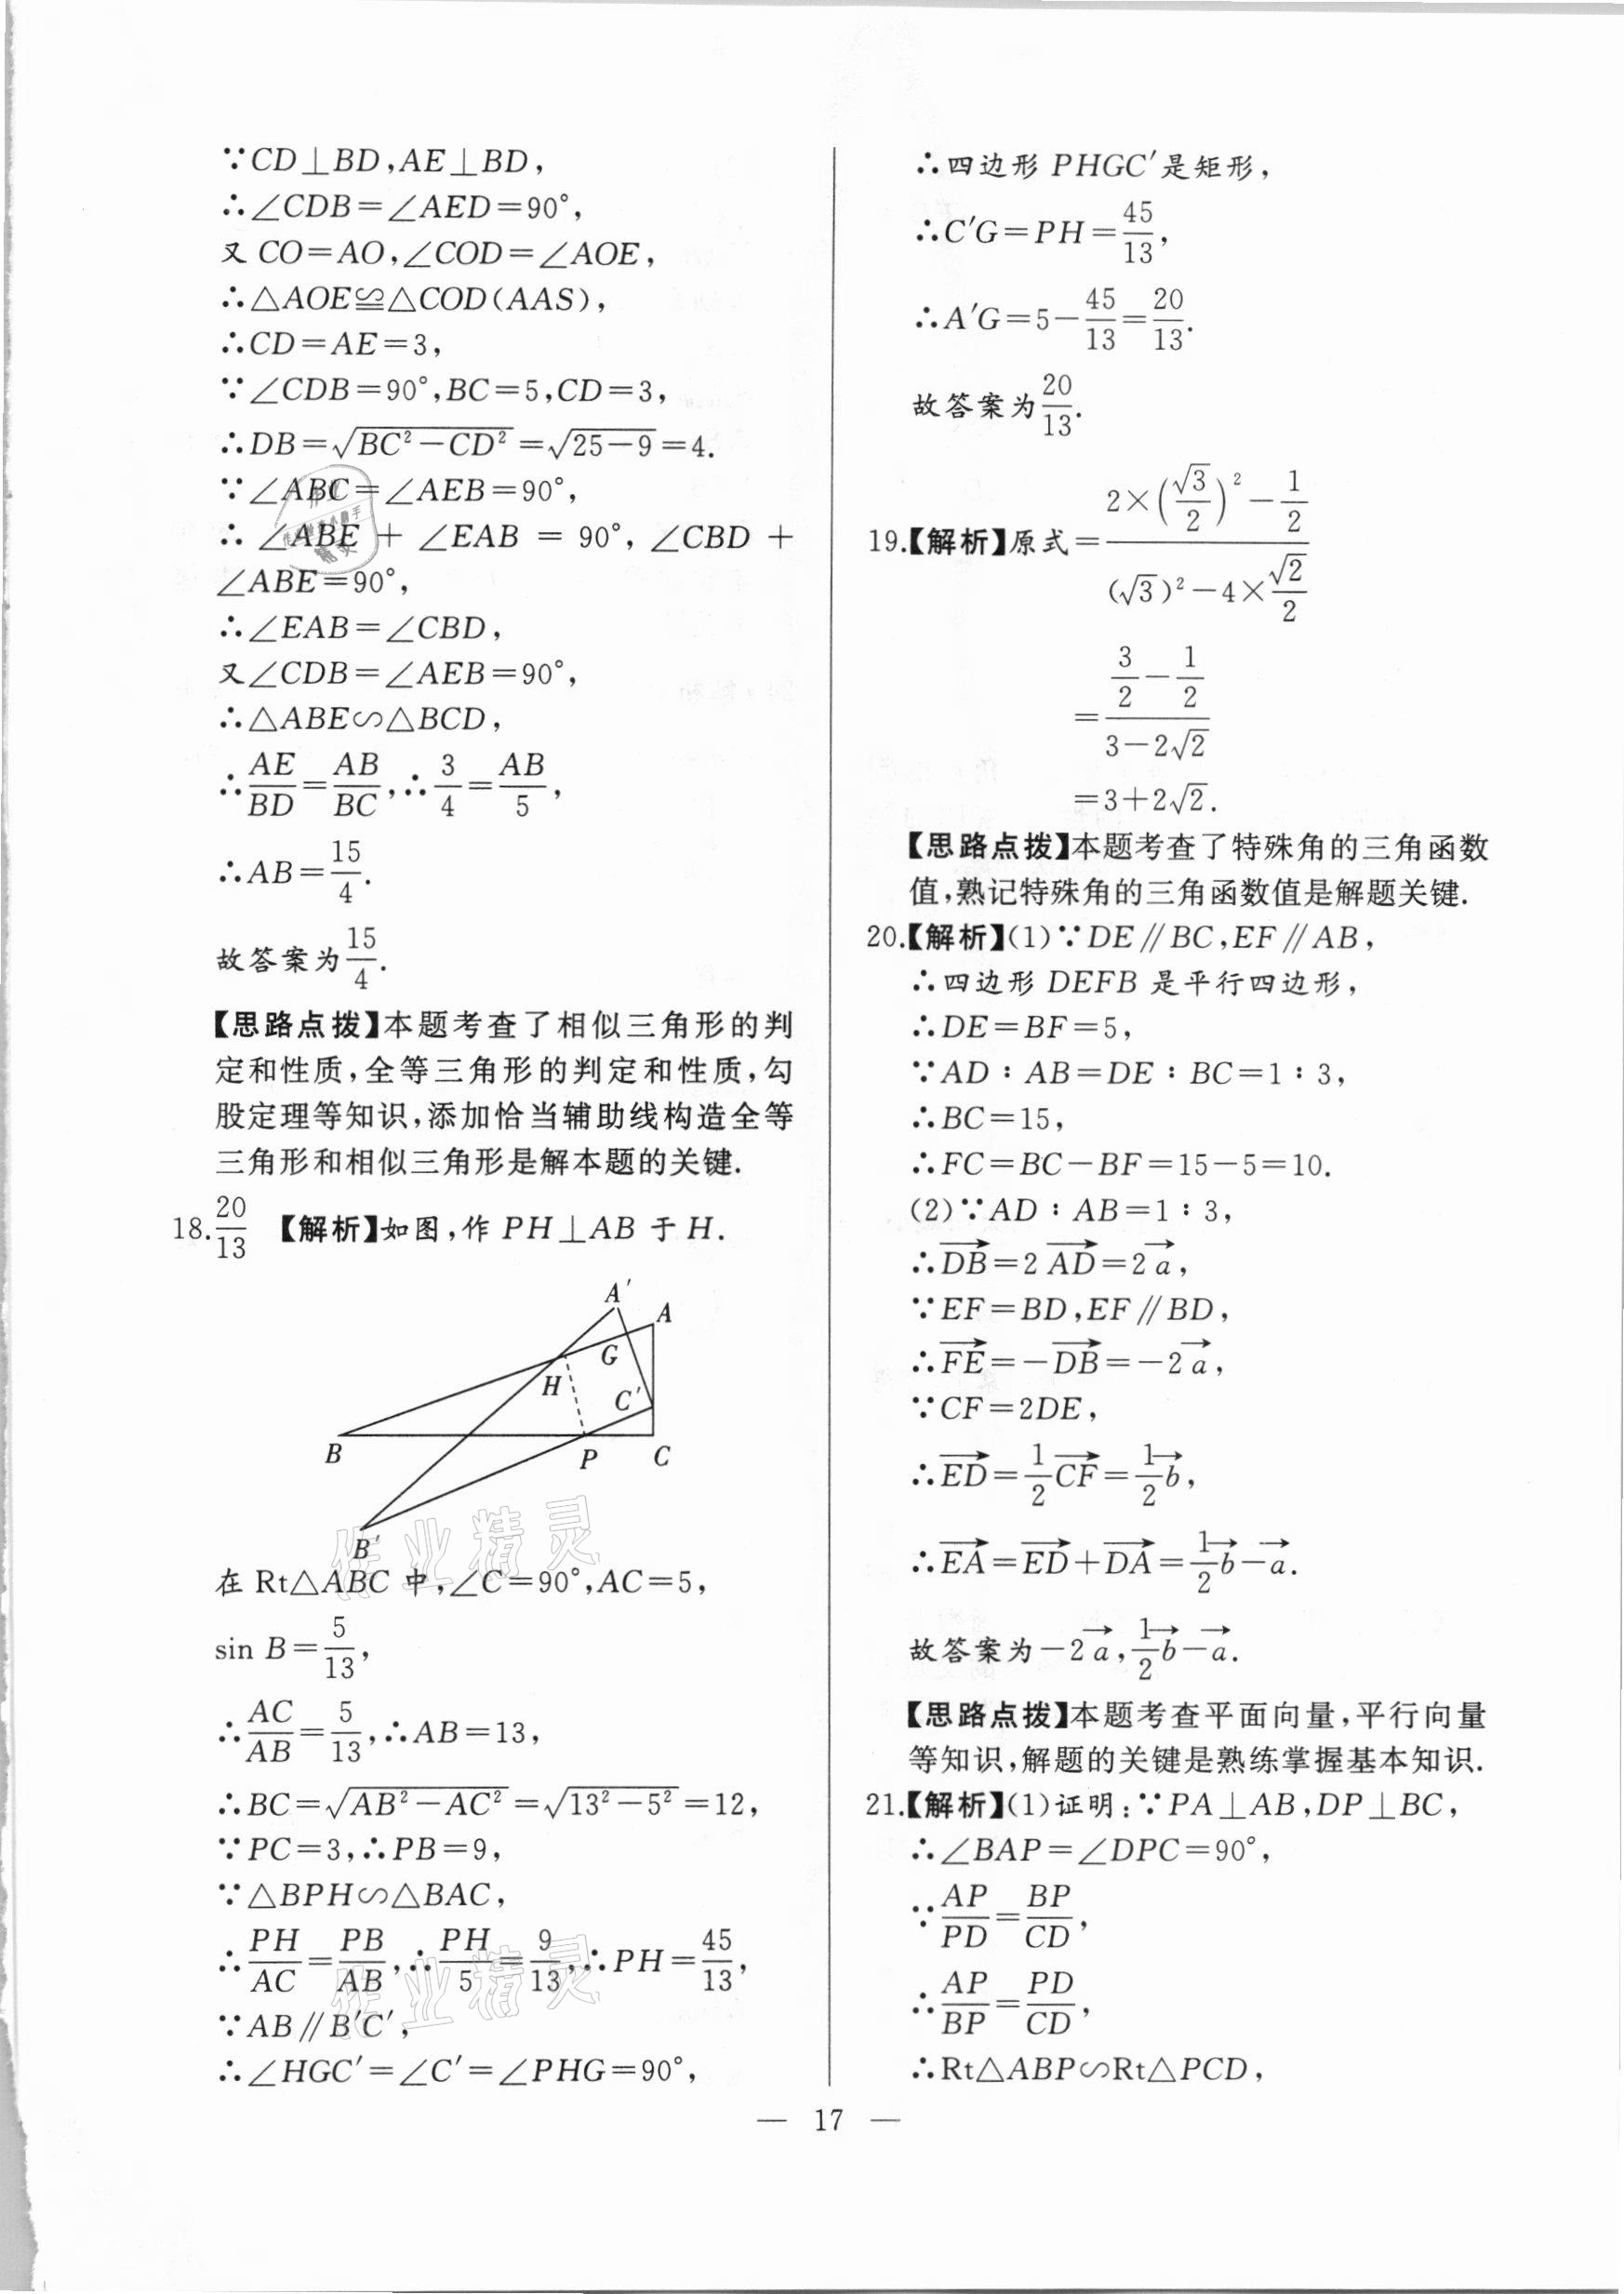 ∵CD⊥BD,AE⊥BD,
∴∠CDB=∠AED=90°,
又 CO=AO,∠COD=∠AOE,
∴△AOE≌△COD(AAS),
∴CD=AE=3,
∵∠CDB=90°,BC=5,CD=3,
∴DB=√(BC²-CD²)=√(25-9)=4.
∵∠ABC=∠AEB=90°,
∴∠ABE+∠EAB=90°,∠CBD+
∠ABE=90°,
∴∠EAB=∠CBD,
又∠CDB=∠AEB=90°,
∴△ABE∽△BCD,
∴AE/BD=AB/BC,∴3/4=AB/5,
∴AB=15/4.
故答案为15/4.
【思路点拨】本题考查了相似三角形的判
定和性质,全等三角形的判定和性质,勾
股定理等知识,添加恰当辅助线构造全等
三角形和相似三角形是解本题的关键.
18.20/13 【解析】如图,作 PH⊥AB 于 H.
A′
A
G
H
C′
B
P
C
B′
在 Rt△ABC 中,∠C=90°,AC=5,
sin B=5/13,
∴AC/AB=5/13,∴AB=13,
∴BC=√(AB²-AC²)=√(13²-5²)=12,
∵PC=3,∴PB=9,
∵△BPH∽△BAC,
∴PH/AC=PB/AB,∴PH/5=9/13,∴PH=45/13,
∵AB∥B′C′,
∴∠HGC′=∠C′=∠PHG=90°,
∴四边形 PHGC′是矩形,
∴C′G=PH=45/13,
∴A′G=5-45/13=20/13.
故答案为20/13.
19.【解析】原式=(2×(√3/2)²-1/2)/((√3)²-4×√2/2)
=(3/2-1/2)/(3-2√2)
=3+2√2.
【思路点拨】本题考查了特殊角的三角函数
值,熟记特殊角的三角函数值是解题关键.
20.【解析】(1)∵DE∥BC,EF∥AB,
∴四边形 DEFB 是平行四边形,
∴DE=BF=5,
∵AD∶AB=DE∶BC=1∶3,
∴BC=15,
∴FC=BC-BF=15-5=10.
(2)∵AD∶AB=1∶3,
∴DB→=2AD→=2a→,
∵EF=BD,EF∥BD,
∴FE→=-DB→=-2a→,
∵CF=2DE,
∴ED→=1/2CF→=1/2b→,
∴EA→=ED→+DA→=1/2b→-a→.
故答案为-2a→,1/2b→-a→.
【思路点拨】本题考查平面向量,平行向量
等知识,解题的关键是熟练掌握基本知识.
21.【解析】(1)证明:∵PA⊥AB,DP⊥BC,
∴∠BAP=∠DPC=90°,
∵AP/PD=BP/CD,
∴AP/BP=PD/CD,
∴Rt△ABP∽Rt△PCD,
— 17 —
作业精灵
作业精灵